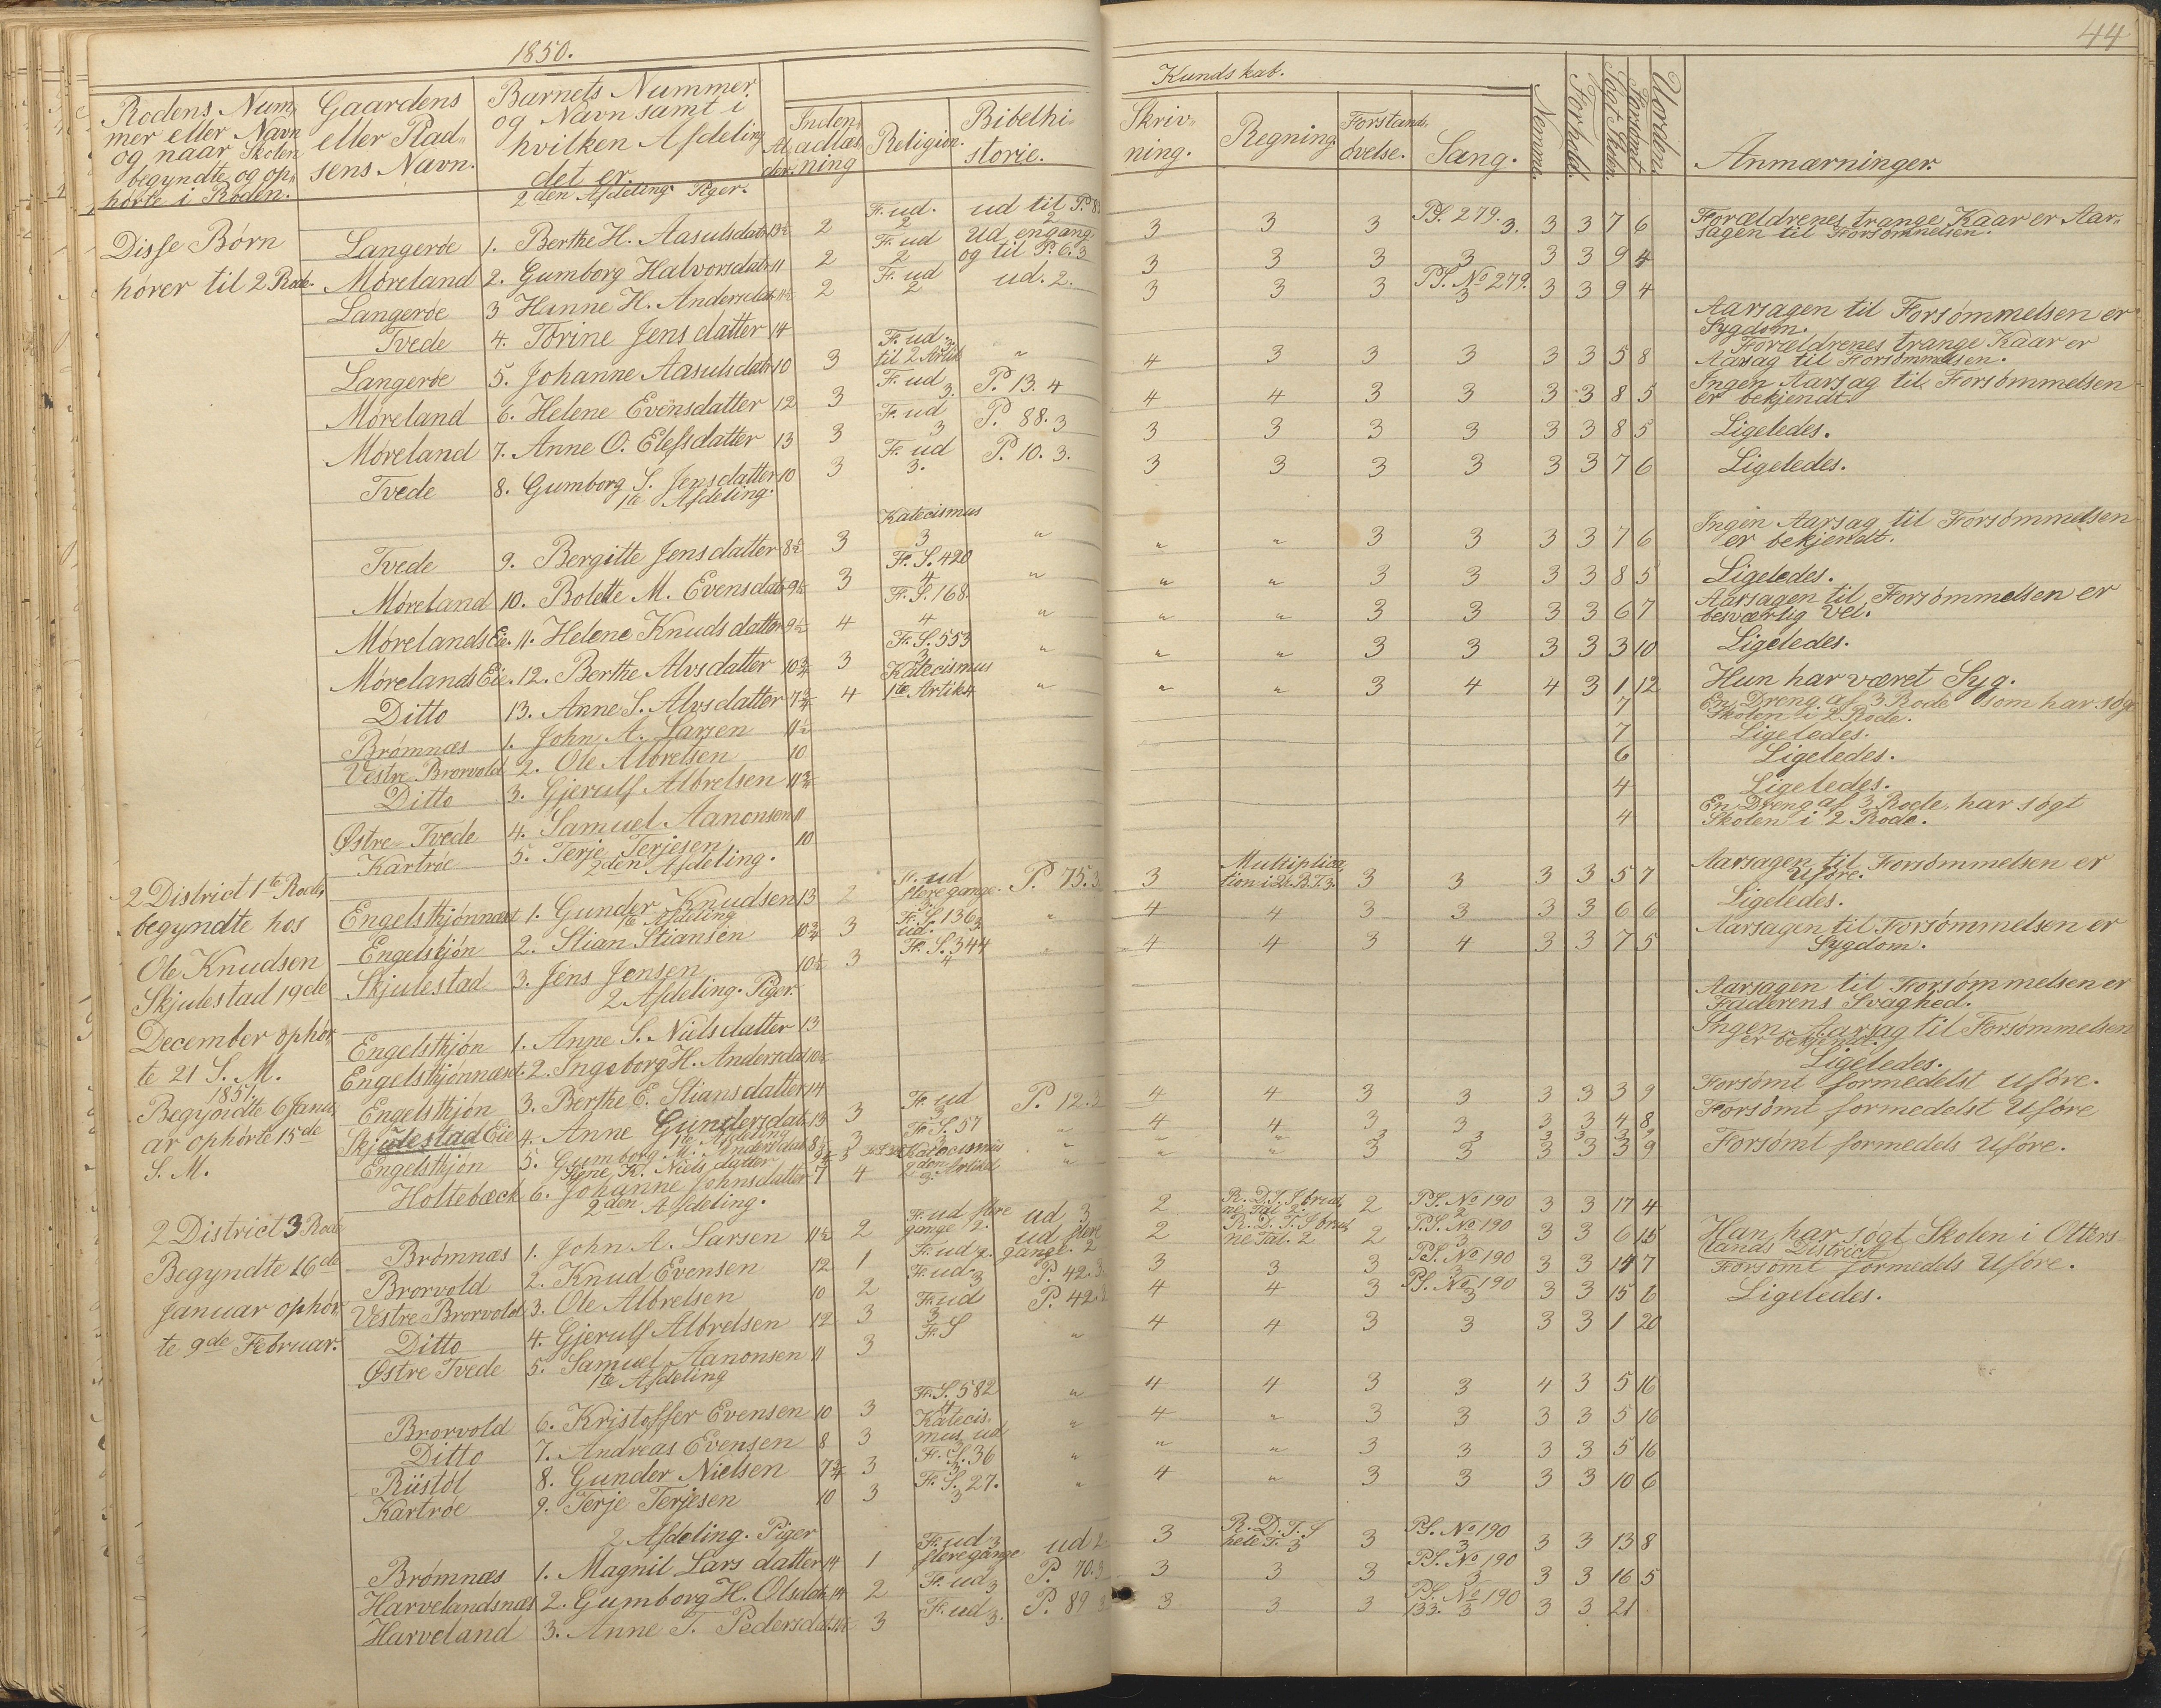 1850.
44
Kundskab.
Rodens Num-
mer eller Navn
og naar Skolen
begyndte og op-
hørte i Roden.
Gaardens
eller Plad-
sens Navn.
Barnets Nummer
og Navn samt i
hvilken Afdeling
det er.
Al-
der.
Inden-
adlæs-
ning
Religion.
Bibelhi-
storie.
Skriv-
ning.
Regning.
Forstand.
øvelse.
Sang.
Nemme.
Forhold.
Søgt Skolen.
Forsømt
Uorden.
Anmærninger.
2den Afdeling Piger.
Disse Børn
hører til 2 Rode.
Langerøe 1. Berthe H. Aasulsdatr 13½ 2 F. ud. 2 ud til P. 8 2 3 3 3 PS. 279. 3. 3 3 7 6 Forældrenes trange Kaar er Aar-
sagen til Forsømmelsen.
Møreland 2. Gumborg Halvorsdatr 11 2 F. ud 2 Ud engang og til P. 6. 3 3 3 3 3 3 3 9 4
Langerøe 3 Hanne H. Andersdatr 11½ 2 F. ud 2 ud. 2. 3 3 3 PS. No 279. 3 3 3 9 4
Tvede 4. Torine Jensdatter 14 Aarsagen til Forsømmelsen er
Sygdom.
Langerøe 5. Johanne Aasulsdatr 10 3 F. ud 3. til 2 Artik " 4 3 3 3 3 3 5 8 Forældrenes trange Kaar er
Aarsag til Forsømmelsen.
Møreland 6. Helene Evensdatter 12 3 F. ud 3. P. 13. 4 4 4 3 3 3 3 8 5 Ingen Aarsag til Forsømmelsen
er bekjendt.
Møreland 7. Anne O. Elefsdatter 13 3 F. ud 3 P. 88. 3 3 3 3 3 3 3 8 5 Ligeledes.
Tvede 8. Gumborg S. Jensdatter 10 3 F. ud 3. P. 10. 3. 3 3 3 3 3 3 7 6 Ligeledes.
1te Afdeling.
Tvede 9. Bergitte Jensdatter 8½ 3 Katecismus 3 " " " 3 3 3 3 7 6 Ingen Aarsag til Forsømmelsen
er bekjendt.
Møreland 10. Bolette M. Evensdatr 9½ 3 F. S. 420 4 " " " 3 3 3 3 8 5 Ligeledes.
Mørelands Eie. 11. Helene Knudsdatter 9½ 4 F. S. 168. 4 " " " 3 3 3 3 6 7 Aarsagen til Forsømmelsen er
besværlig Vei.
Mørelands Eie. 12. Berthe Alvsdatter 10¾ 3 F. S. 553 3 " " " 3 3 3 3 3 10 Ligeledes.
Ditto 13. Anne S. Alvsdatter 7¾ 4 Katecismus 1te Artik 4 " " " 3 4 4 3 1 12 Hun har været Syg.
Brømnæs 1. John A. Larsen 11½ 7 En Dreng af 3 Rode som har søgt
Skolen i 2 Rode.
Vestre Brorvold 2. Ole Albretsen 10 7 Ligeledes.
Ditto 3. Gjerulf Albretsen 11¾ 6 Ligeledes.
Østre Tvede 4. Samuel Aanonsen 11 4 Ligeledes.
Kartrøe 5. Terje Terjesen 10 4 En Dreng af 3 Rode, har søgt
Skolen i 2 Rode.
2den Afdeling.
2 District 1te Rode,
begyndte hos
Ole Knudsen
Skjulestad 19de
December ophør
te 21 S. M.
1851.
Begyndte 6 Janu
ar ophørte 15de
S. M.
Engelsthjønnæset 1. Gunder Knudsen 13 2 F. ud flere gange. 3 P. 75. 3 3 Multiplica,
tion i 2t. B. T. 3. 3 3 3 3 5 7 Aarsagen til Forsømmelsen er
Uføre.
1te Afdeling
Engelstjøn 2. Stian Stiansen 10¾ 3 F. S. 136 ud. 3 " 4 4 3 3 3 3 6 6 Ligeledes.
Skjulestad 3. Jens Jensen 10½ 3 F. S. 344 4 " 4 4 3 4 3 3 7 5 Aarsagen til Forsømmelsen er
Sygdom.
2 Afdeling. Piger.
Engelsthjøn 1. Anne S. Nielsdatter 13 Aarsagen til Forsømmelsen er
Faderens Svaghed.
Engelsthjønnæset. 2. Ingeborg H. Andersdat 10½ Ingen Aarsag til Forsømmelsen
er bekjendt.
Engelsthjøn 3. Berthe E. Stiansdatter 14 Ligeledes.
Skjulestad Eie 4. Anne Gundersdatr 13 3 F. ud 3 P. 12. 3 4 4 3 3 3 3 3 9 Forsømt formedelst Uføre.
1te Afdeling
Engelsthjøn 5. Gumborg M. Andersdatr 8½ 3 F. S. 57 3 " 4 4 3 3 3 3 4 8 Forsømt formedelst Uføre
Signe K. Nielsdatter " " " 3 3 3 3 3 9
Holtebæck 6. Johanne Johnsdatter 7 4 Katecismus 2den Artikel 3. " " " 3 3 3 3 3 9 Forsømt formedels Uføre.
2den Afdeling.
2 District 3 Rode
Begyndte 16de
Januar ophør,
te 9de Februar.
Brømnæs 1. John A. Larsen 11½ 2 F. ud flere gange 2. ud 3 2 R. D. T. I brud,
ne Tal 2. 2 PS. No 190 2 3 3 17 4
Brorvold 2. Knud Evensen 12 1 F. ud 2. ud flere gange. 2 2 R. D. T. I brud,
ne Tal. 2 2 P.S. No 190 3 3 3 6 15 Han har søgt Skolen i Otters-
lands District
Vestre Brorvold 3. Ole Albretsen 10 2 F. ud 3 P. 42. 3 3 3 3 PS. No 190 3 3 3 14 7 Forsømt formedels Uføre.
Ditto 4. Gjerulf Albretsen 12 3 F. ud 3 P. 42. 4 4 3 PS. No 190 3 3 3 15 6 Ligeledes.
Østre Tvede 5. Samuel Aanonsen 11 3 F. S " 4 4 3 3 3 3 1 20
1te Afdeling
Brorvold 6. Kristoffer Evensen 10 3 F. S. 582 4 " 4 4 3 3 4 3 5 16
Ditto 7. Andreas Evensen 8 3 Katecis-
mus ud " 4 " 3 3 3 3 5 16
Riistøl 8. Gunder Nielsen 7¾ 3 F. S. 36 3. " " " 3 3 3 3 5 16
Kartrøe 9. Terje Terjesen 10 3 F. S. 27. 3 " 4 " 3 3 3 3 10 6
2 Afdeling. Piger
Brømnæs 1. Magnil Lars datter 14 1 F. ud 3 flere gange ud 2. 3 R. D. T. I
hele T. 3 3 PS. No 190 3 3 3 13 8
Harvelandsnæs 2. Gumborg H. Olsdatr 14 2 F. ud 3 P. 70. 3 3 3 3 PS. No 190 3 3 3 16 5
Harveland 3. Anne T. Pedersdat. 3 F. ud 3. P. 89 3 3 3 PS. No 190
133. 3 3 3 21